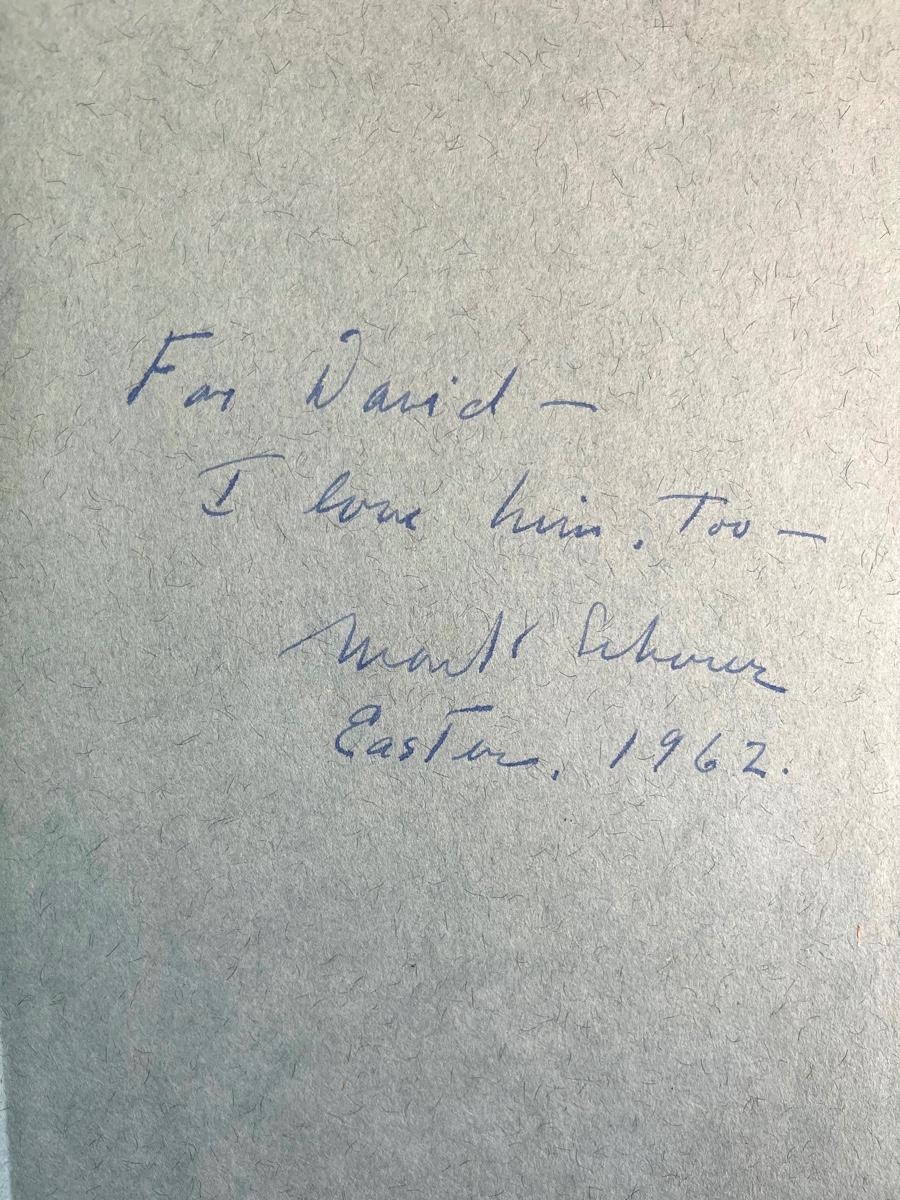 For David —
I love him, Too —
Mark Schorer
Easter, 1962.